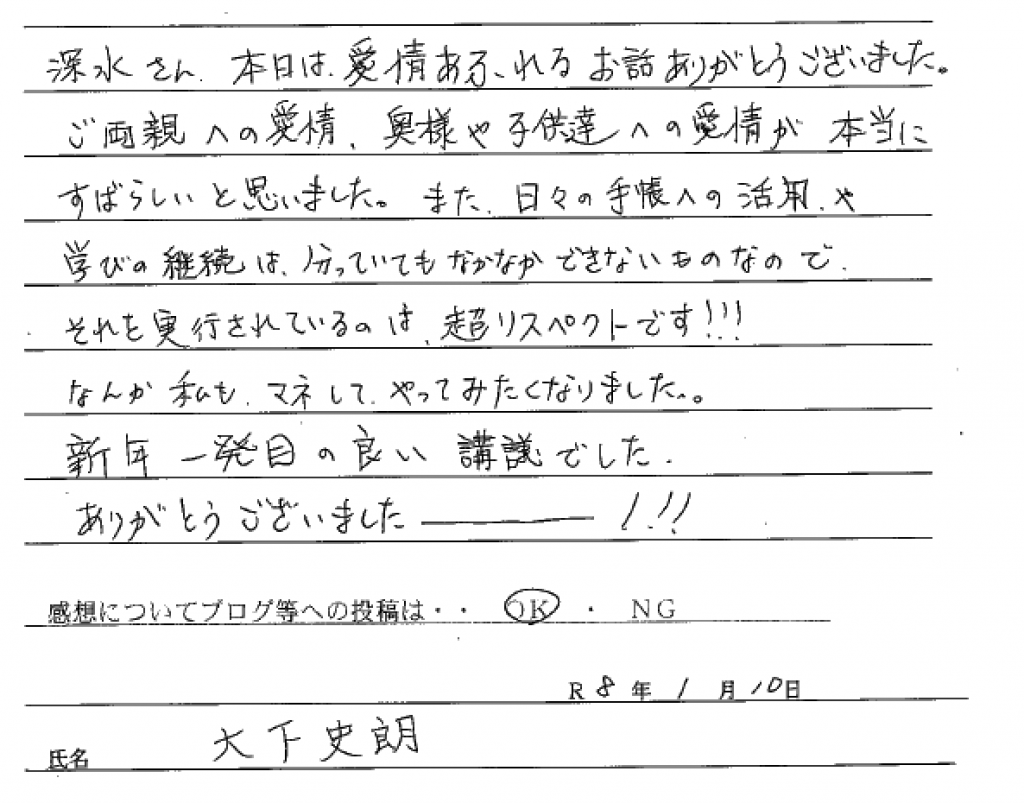 深水さん、本日は、愛情あふれるお話ありがとうございました。
ご両親への愛情、奥様や子供達への愛情が本当に
すばらしいと思いました。また、日々の手帳への活用、や
学びの継続は、分っていてもなかなかできないものなので、
それを実行されているのは、超リスペクトです!!!
なんか私も、マネして、やってみたくなりました。
新年一発目の良い講議でした。
ありがとうございました――――!!!
感想についてブログ等への投稿は・・ OK ・ NG
R 8 年 1 月 10日
氏名 大下史朗